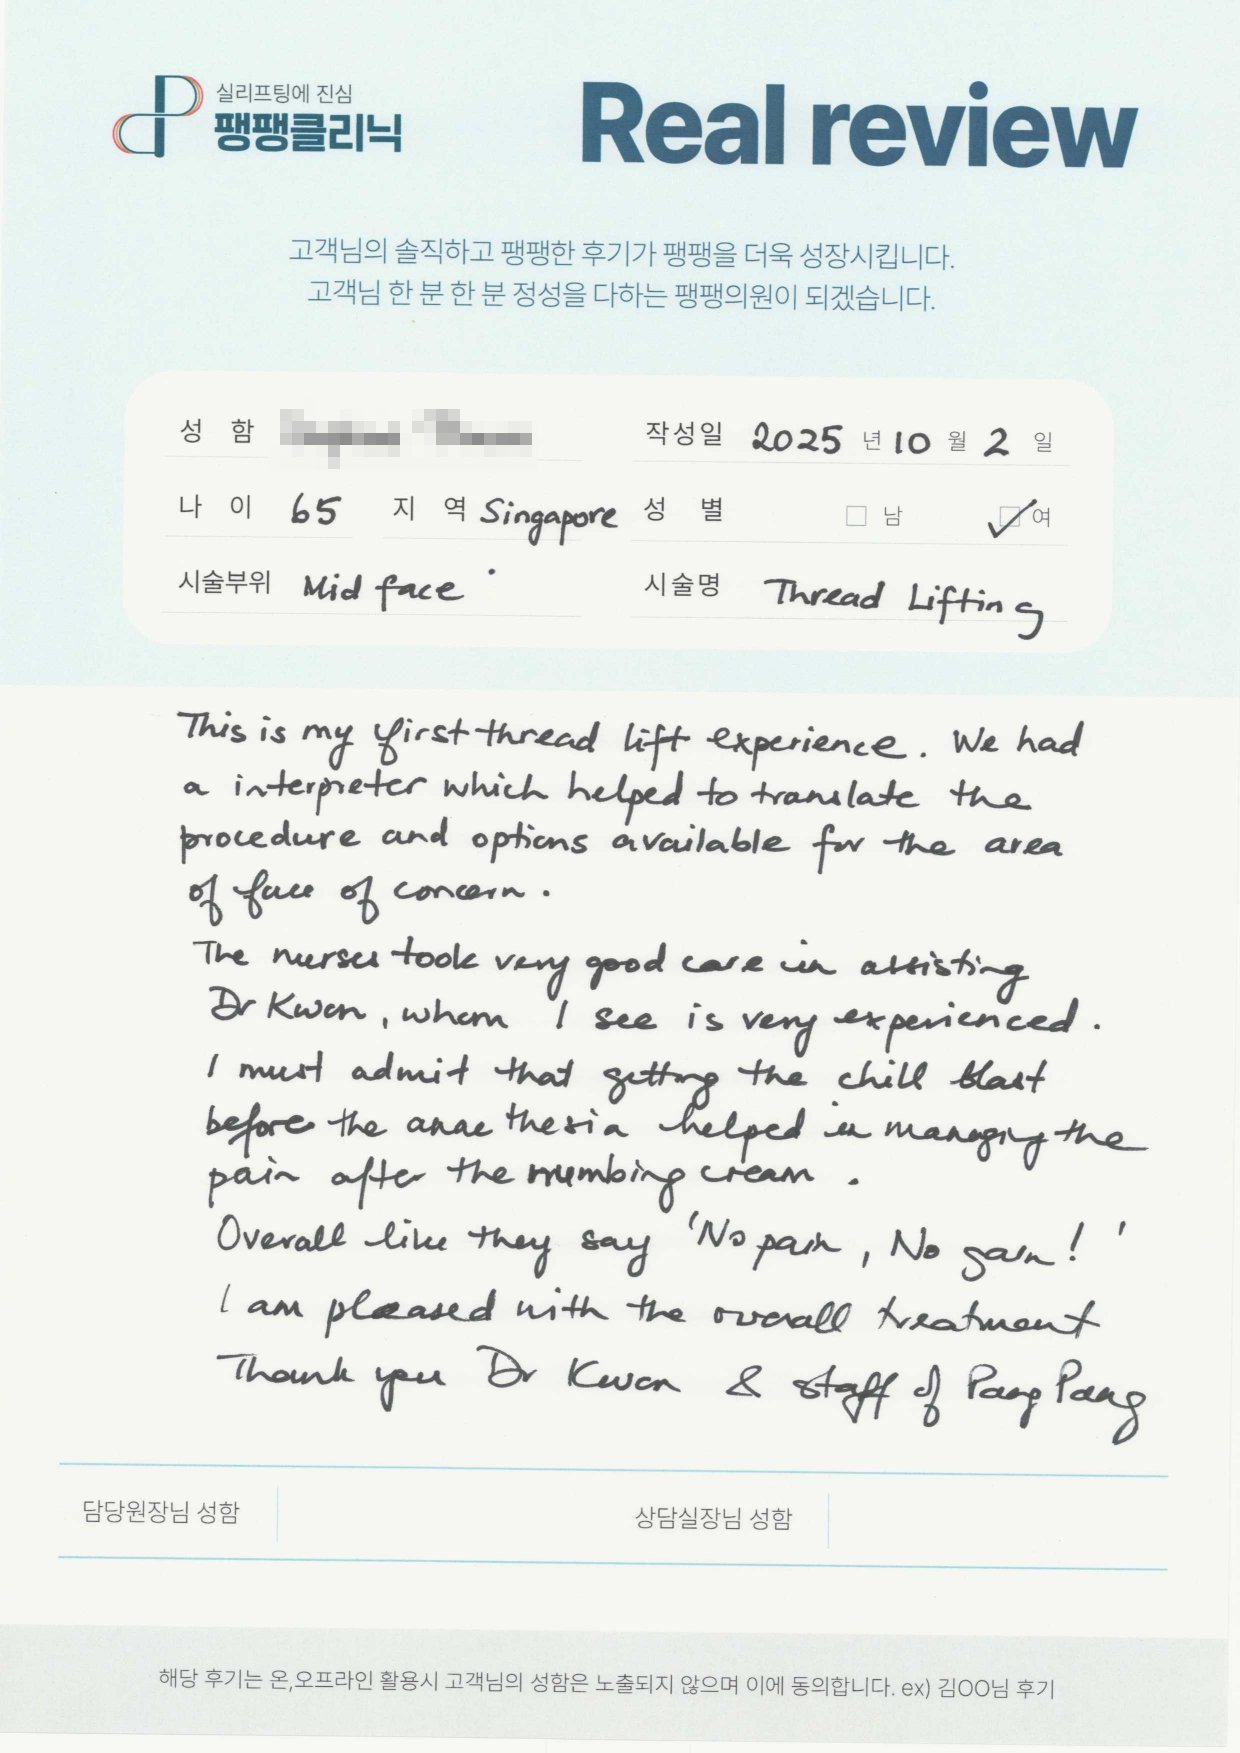 실리프팅에 진심
팽팽클리닉
Real review
고객님의 솔직하고 팽팽한 후기가 팽팽을 더욱 성장시킵니다.
고객님 한 분 한 분 정성을 다하는 팽팽의원이 되겠습니다.
성 함 작성일 2025 년 10 월 2 일
나 이 65 지 역 Singapore 성 별 남 여
시술부위 Mid face 시술명 Thread Lifting
This is my first thread lift experience. We had
a interpreter which helped to translate the
procedure and options available for the area
of face of concern.
The nurses took very good care in assisting
Dr Kwon, whom I see is very experienced.
I must admit that getting the chill blast
before the anaethesia helped in managing the
pain after the numbing cream.
Overall like they say 'No pain, No gain!'
I am pleased with the overall treatment
Thank you Dr Kwon & staff of Pang Pang
담당원장님 성함 상담실장님 성함
해당 후기는 온,오프라인 활용시 고객님의 성함은 노출되지 않으며 이에 동의합니다. ex) 김OO님 후기